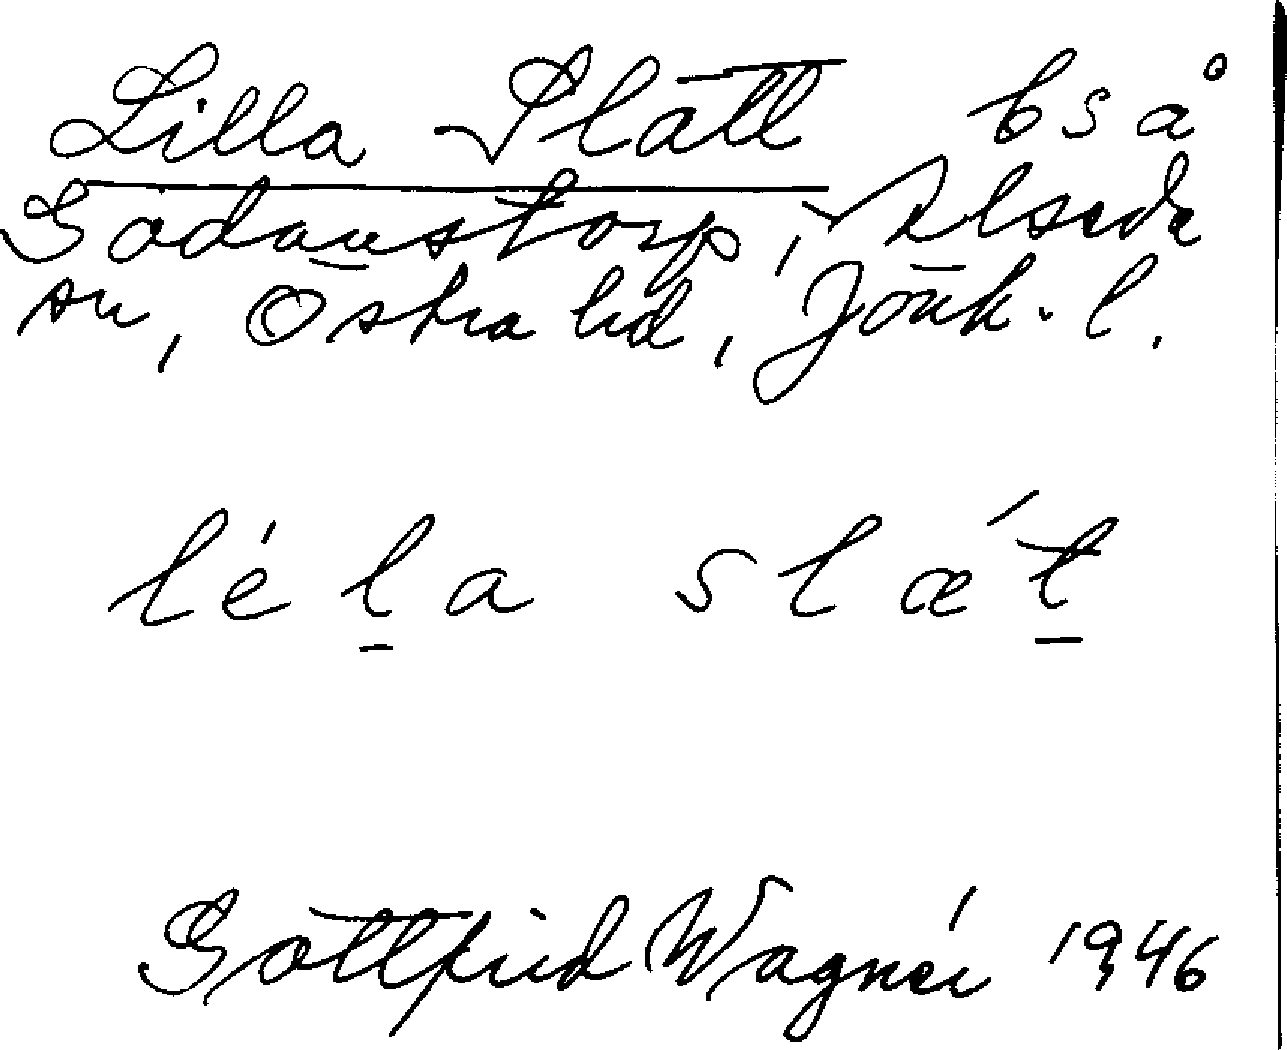 Lilla Slätt bs å
Gödanstorp, Alseda
sn, Östra hd, Jönk. l.
léḻa slǽṯ
Gottfrid Wagnér 1946